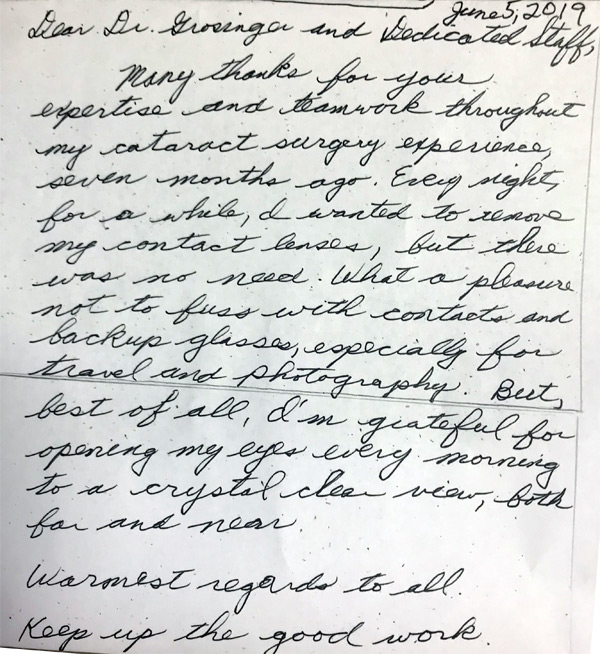 June 5, 2019
Dear Dr. Grosinger and Dedicated Staff,
Many thanks for your
expertise and teamwork throughout
my cataract surgery experience,
seven months ago. Every night,
for a while, I wanted to remove
my contact lenses, but there
was no need. What a pleasure
not to fuss with contacts and
backup glasses, especially for
travel and photography. But,
best of all, I'm grateful for
opening my eyes every morning
to a crystal clear view, both
far and near.
Warmest regards to all.
Keep up the good work.